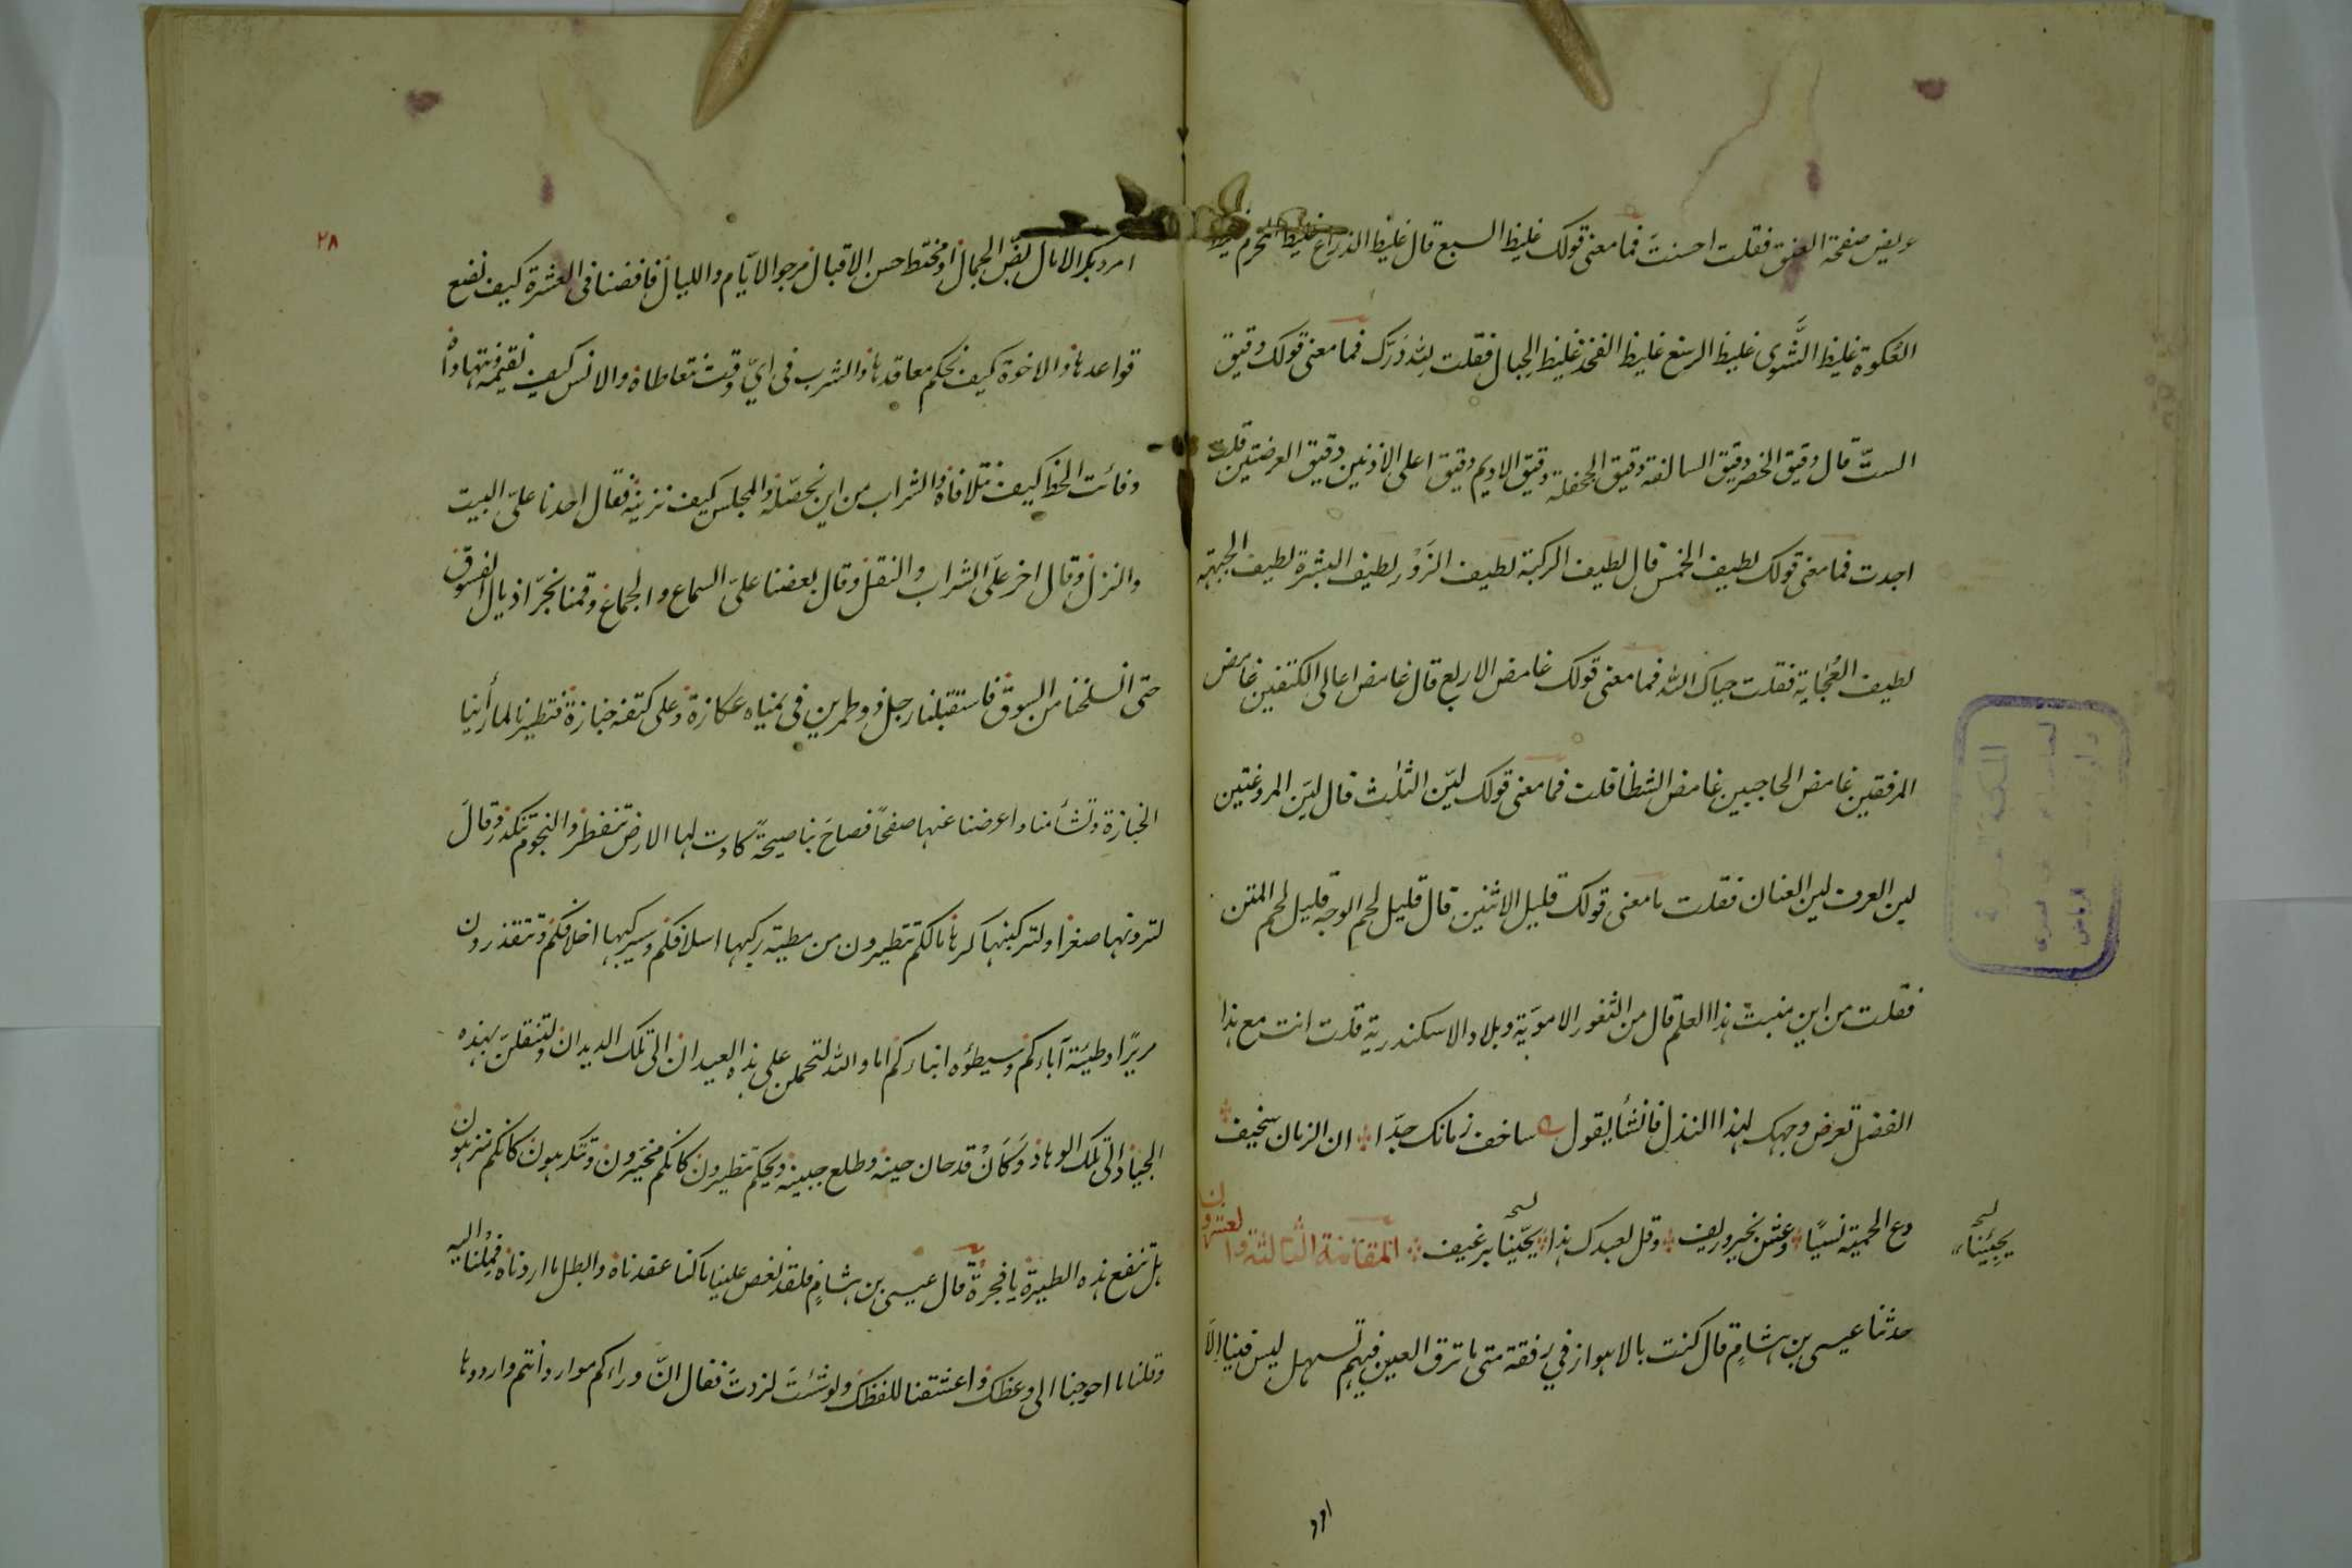 عريض صفحة العنق فقلت احسنتَ فما معنى قولك غليظ السبع قال غليظ الذراع غليظ المحزم غليظ
العُكوة غليظ الشَّوى غليظ الرسغ غليظ الفخذ غليظ الحبال فقلت لله دَرّك فما معنى قولك دقيق
الستّ قال دقيق الخصر دقيق السالفة دقيق الجحفلة دقيق الاديم دقيق اعلى الاذنين دقيق العرضتين قلت
اجدت فما معنى قولك لطيف الخمس قال لطيف الركبة لطيف الزَوْر لطيف البشرة لطيف الجبهة
لطيف العُجاية فقلت حياك الله فما معنى قولك غامض الاربع قال غامض اعالى الكتفين غامض
المرفقين غامض الحاجبين غامض الشظا قلت فما معنى قولك ليّن الثلاث قال ليّن المردغتين
لين العرف لين العنان فقلت ما معنى قولك قليل الاثنين قال قليل لحم الوجه قليل لحم المتن
فقلت من اين منبت هذا العلم قال من الثغور الاموَيّة وبلاد الاسكندرية قلت انت مع هذا
الفضل تعرض وجهك لهذا النذل فانشأ يقول ساخف زمانك جدّا ان الزمان سخيف
دع الحمية نسيًا وعش بخير وريف وقل لعبدك هذا يجّينا برغيف المقامة الثالثة والعشرون
نسخه
يجيئنا
حدثنا عيسى بن هشامٍ قال كنت بالاهواز في رفقة متى ما ترق العين فيهم تسهل ليس فينا الّا
امرد
٢٨
امرد بكر الامال بضّ الجمال او مختط حسن الاقبال مرجو الايّام والليال فافضنا فى العشرة كيف نضع
قواعدها والاخوة كيف نحكم معاقدها والشرب فى ايّ وقت نتعاطاه والانس كيف نقيمه نتهاداه
وفائت الحظ كيف نتلافاه والشراب من اين نحصّله والمجلس كيف نزينه فقال احدنا عليّ البيت
والنزل وقال اخر عليّ الشراب والنقل وقال بعضنا عليّ السماع والجماع وقمنا نجرّ اذيال الفسوق
حتى انسلخنا من السوق فاستقبلنا رجل ذو طمرين فى يمناه عكازة وعلى كتفه جنازة فتطيرنا لما رأينا
الجنازة وتشأمنا واعرضنا عنها صفحًا فصاحَ بنا صيحةً كادت لها الارض تنفطر والنجوم تنكدر وقالَ
لترونها صغرا ولتركبنها كرها مالكم تتطيرون من مطية ركبها اسلافكم وسيركبها اخلافكم وتتقذرون
سريرًا وطئة آباءكم وسيطؤه ابناءكم اما والله لتحملن على هذه العيدان الى تلك الديدان ولتنقلن بهذه
الجياد الى تلك الوهاد وَكَانْ قد حان حينه وطلع جبينه ويحكم تتطيرون كانكم مخيّرون وتتكرهون كانكم منزهون
هل تنفع هذه الطيرة يا فجرة قال عيسى بن هشامٍ فلقد نغص علينا ما كنا عقدناه وابطل ما اردناه فمِلْنا اليه
وقلنا ما احوجنا الى وعظك واعشقنا للفظك ولو شئتَ لزدتَ فقال انّ وراءكم موارد أنتم واردوها